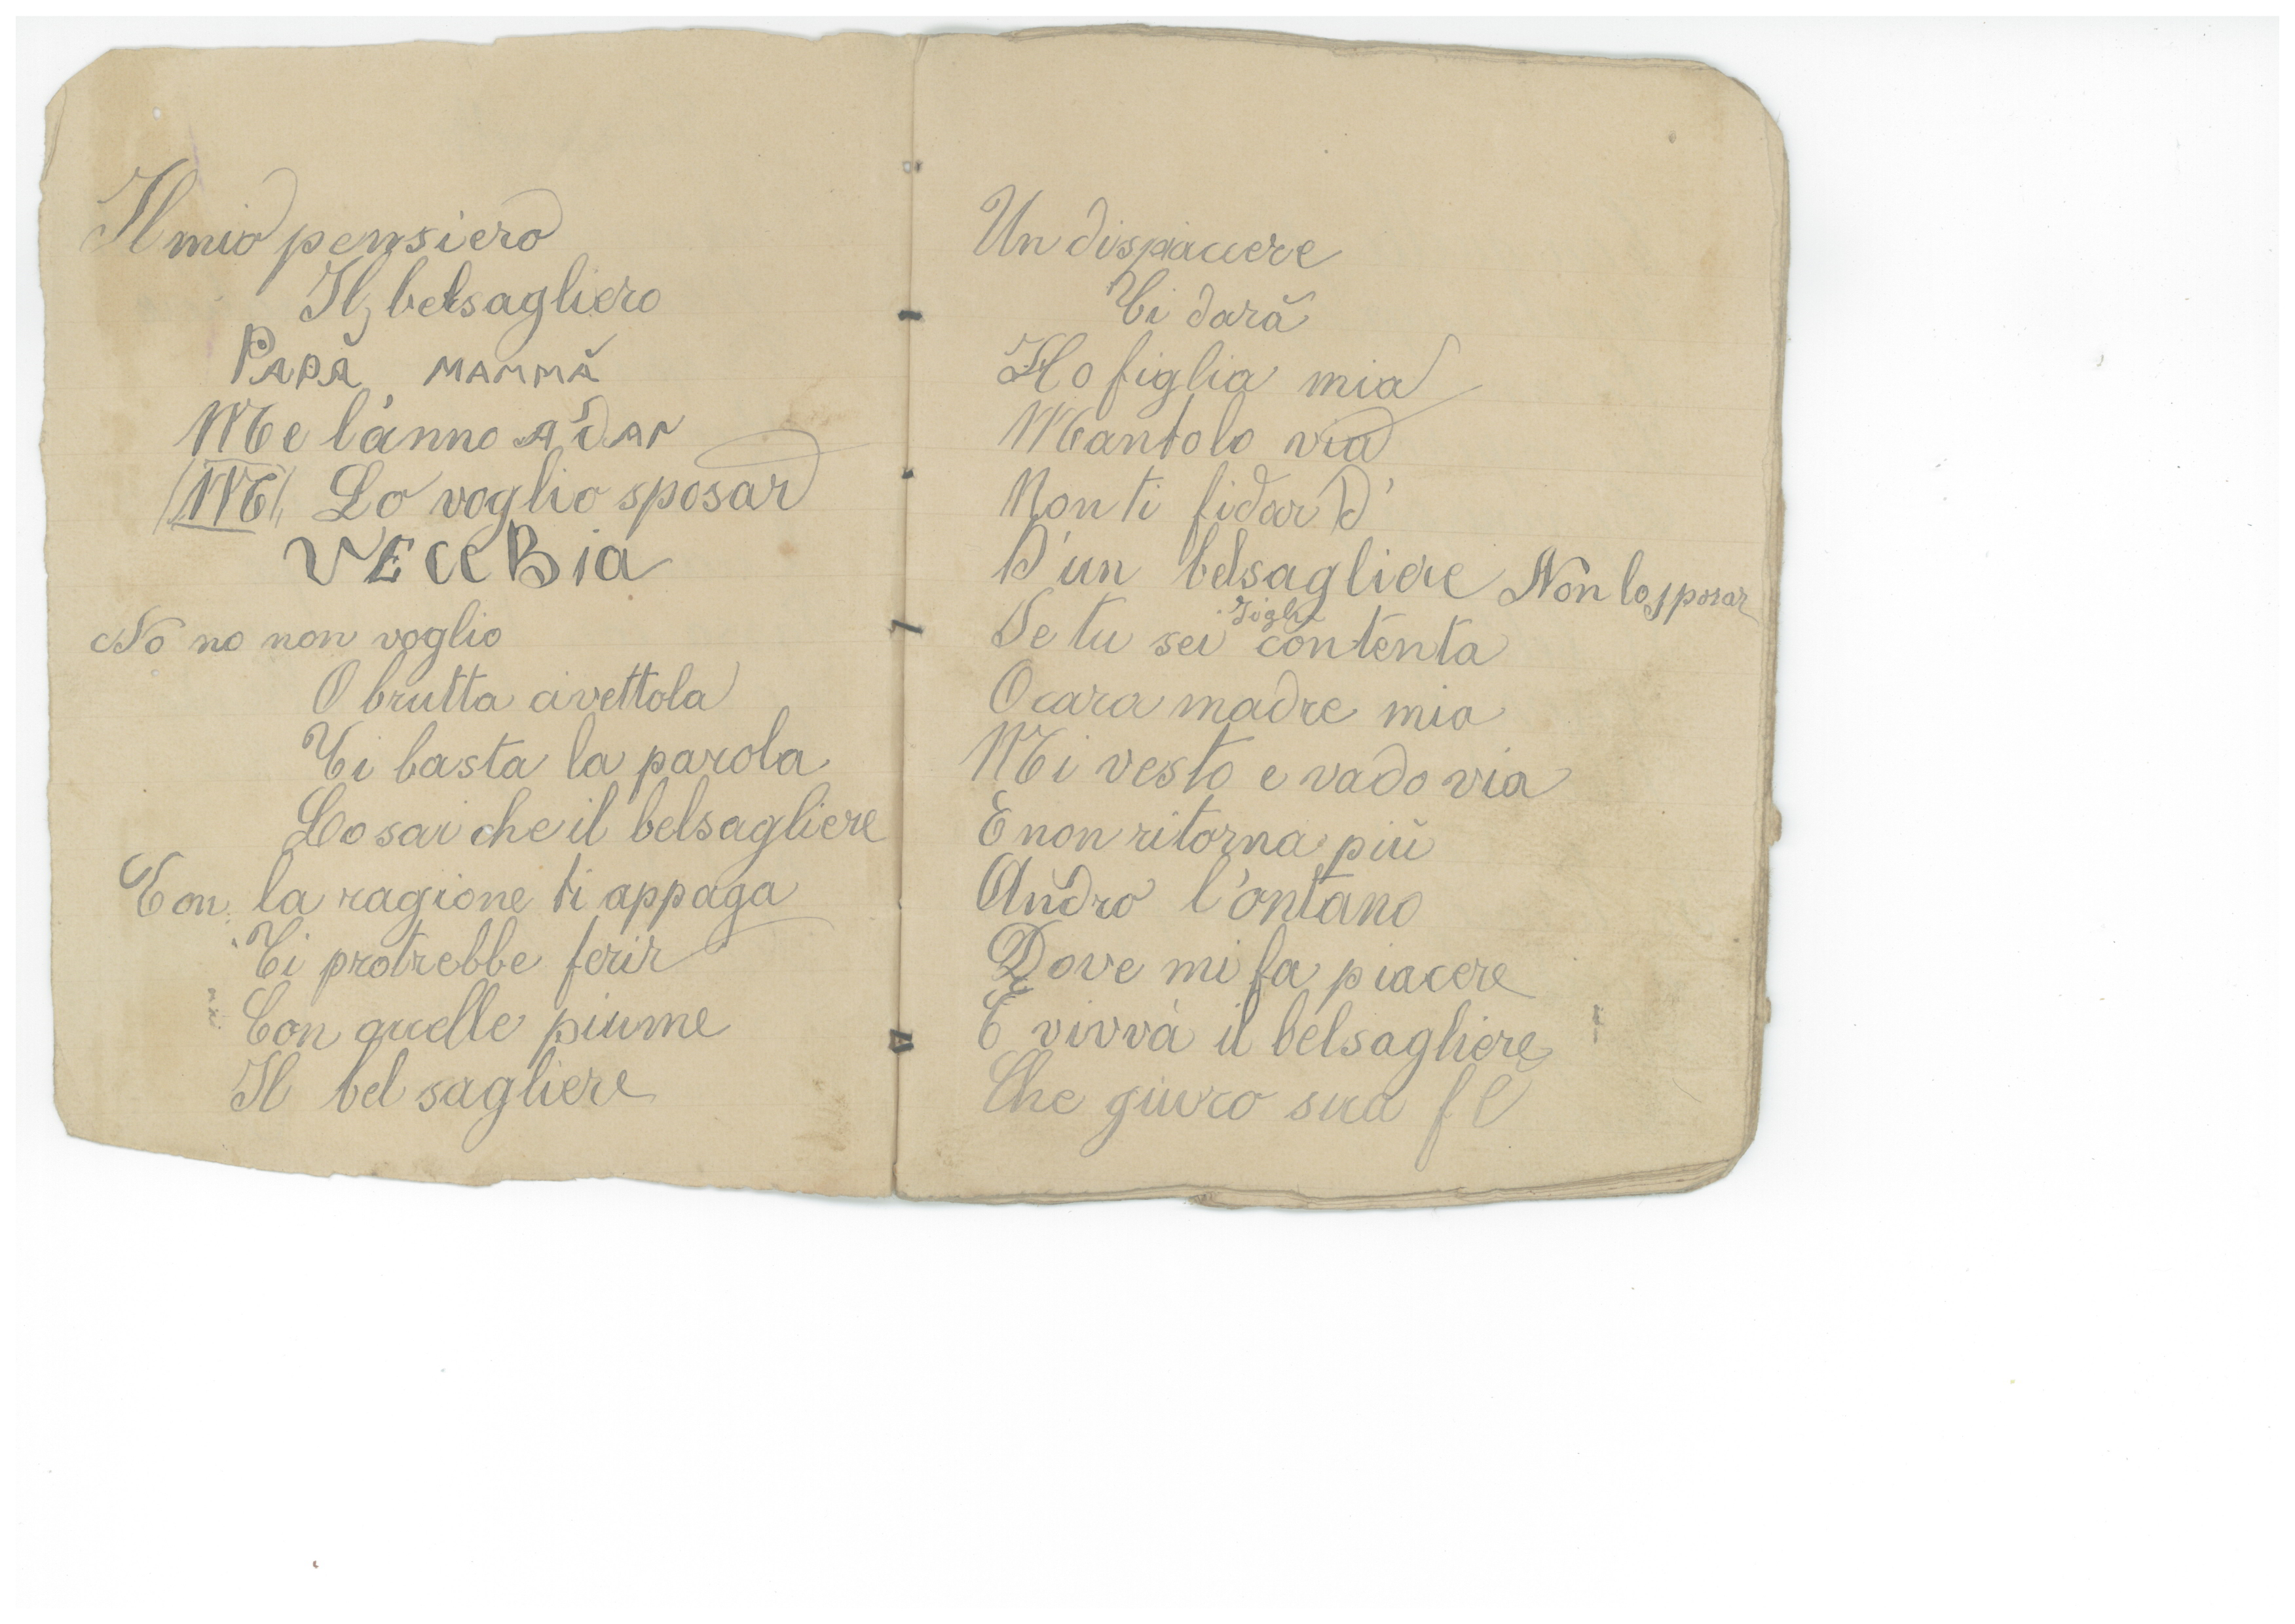 Il mio pensiero
Il belsagliero
PAPĂ MAMMĂ
Me l'anno A dar
(Me) Lo voglio sposar
VECCBia
No no non voglio
O brutta civettola
Ti basta la parola
Lo sai che il belsagliere
Con la ragione ti appaga
Ti protrebbe ferir
Con quelle piume
Il bel sagliere
Un dispiaccere
Ti dară
Ho figlia mia
Mantolo via
Non ti fidar D'
D'un belsagliere Non lo sposar
Se tu sei contenta
O cara madre mia
Mi vesto e vado via
E non ritorna piŭ
Andro l'ontano
Dove mi fa piacere
E vivvà il belsagliere
Che giuro sua fe